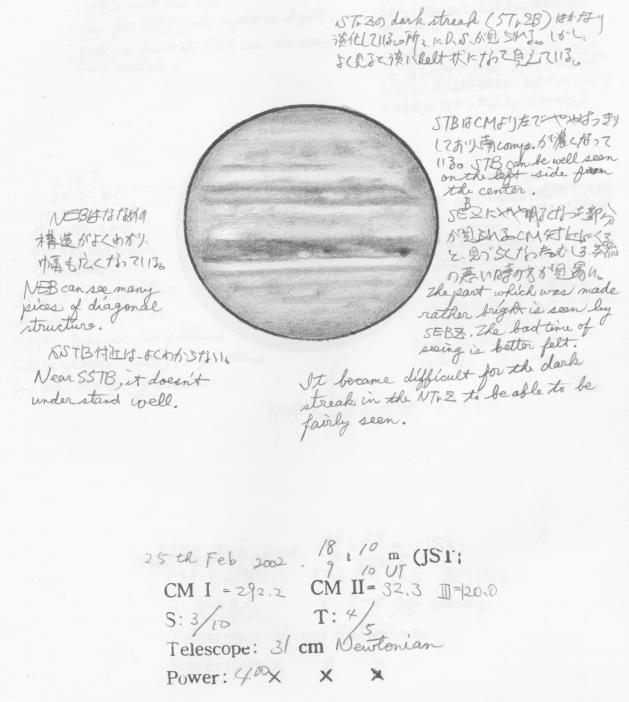 STrZのdark streak (STrZB) はかなり
淡化している。所々にD.S.が見られる。しかし、
よく見ると淡いbelt状になって見えている。
STBはCMより左でややはっきり
しており南comp.が濃くなって
いる。STB can be well seen
on the left side from
the center.
NEBはななめの
構造がよくわかり、
巾幅も広くなっている。
NEB can see many
pices of diagonal
structure.
SEBZにやや明るかった部分
が見られる。CM付近にくる
と、見づらくなった
の悪い時の方が見易い。
The part which was made
rather bright is seen by
SEBZ. The bad time of
seeing is better felt.
SSTB付近はよくわからない。
Near SSTB, it doesn't
understand well.
It became difficult for the dark
streak in the NTrZ to be able to be
fairly seen.
25th Feb 2002. 18 : 10 m (JST;
9 10 UT
CM I = 292.2 CM II = 32.3 III=120.0
S: 3/10 T: 4/5
Telescope: 31 cm Newtonian
Power: 400× × ×